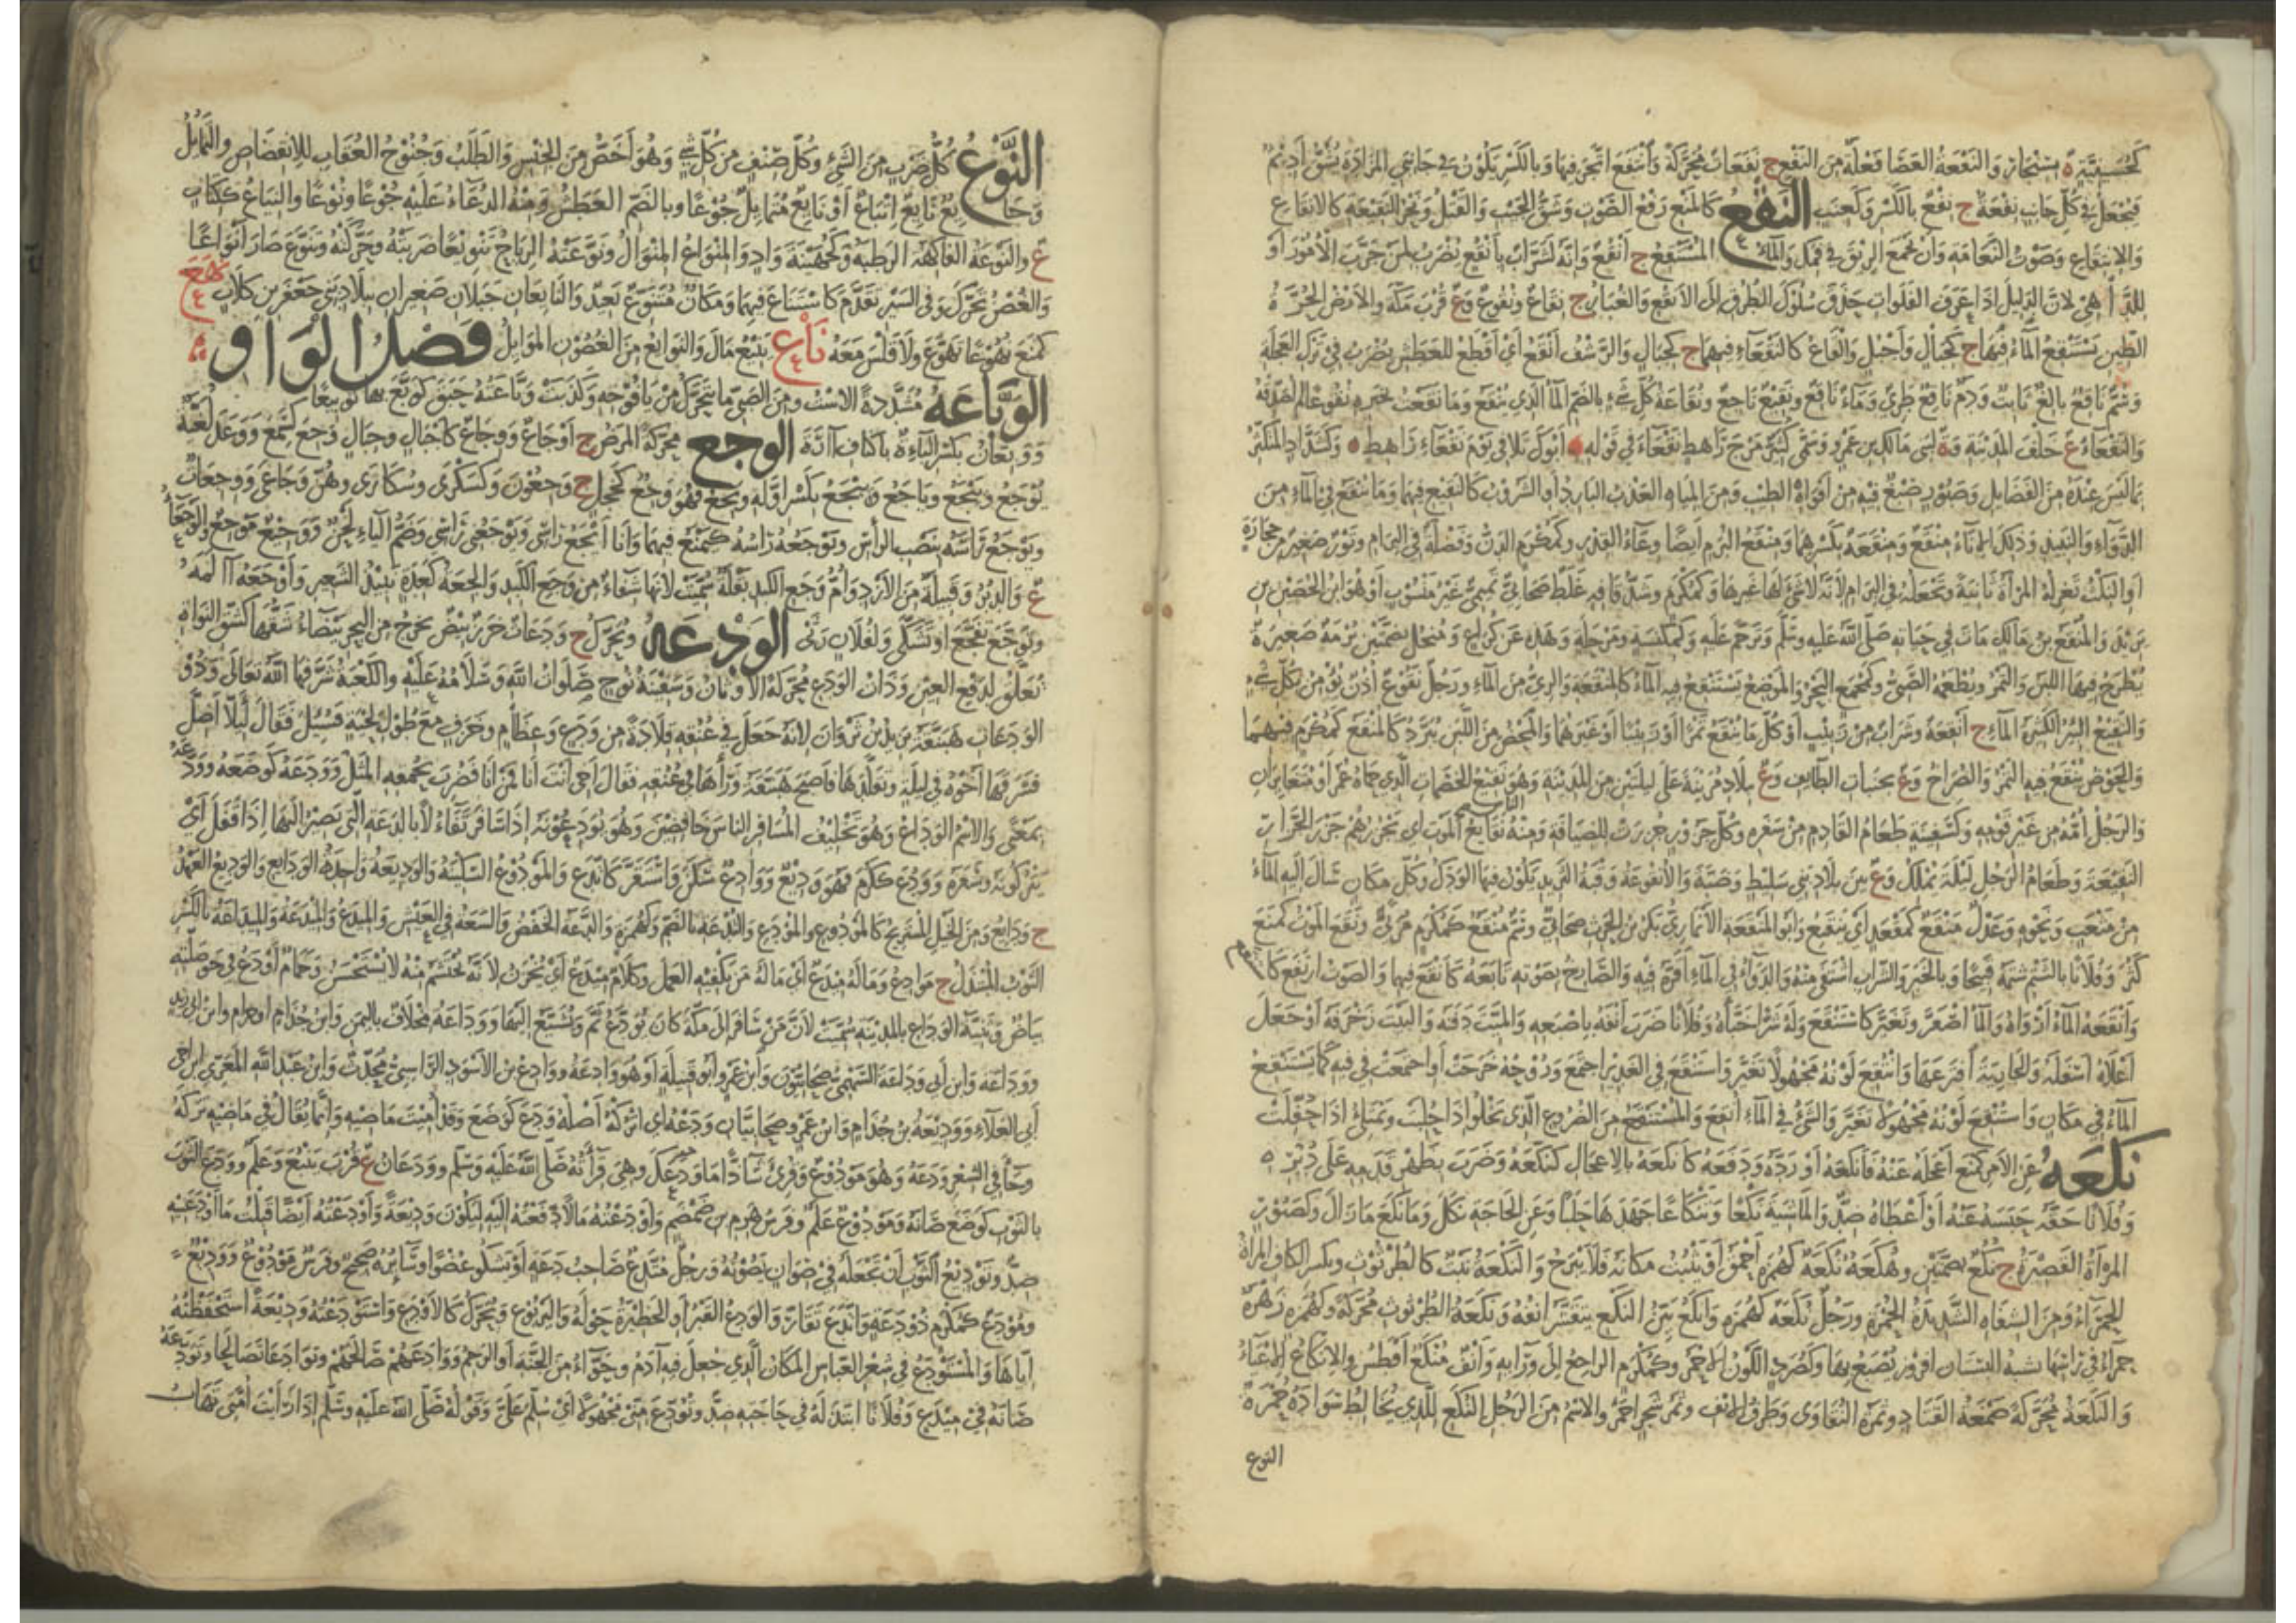 كحسينية ه بسنجار والنفعة العصا فعلة من النفع ج نفعات محركة وأنفع اتجر فيها وبالكسر يكون في جانبي المزادة يشق أديم
فيجعل في كل جانب نفعة ج نفع بالكسر وكعنب النقع كالمنع رفع الصوت وشق الجيب والقتل ونحر النقيعة كالانقاع
والانتقاع وصوت النعامة وأن تجمع الريق في فمك والماء المستنقع ج أنقع وإنه لشراب بأنقع يضرب لمن جرب الأمور أو
للداهي لان الدليل إذا عرف الفلوات حذق سلوك الطرق إلى الأنقع والغبار ج نقاع ونقوع وع قرب مكة والارض الحرة
الطين يستنقع الماء فيها ج كجبال وأجبل والقاع كالنقعاء فيهما ج كجبال والرشف أنقع أي أقطع للعطش يضرب في ترك العجلة
وسم ناقع بالغ ثابت ودم ناقع طري وماء ناقع ونقيع ناجع ونقاعة كل شيء بالضم الماء الذي ينقع وما نقعت بخبره نقوعا لم أصدقه
والنقعاء ع خلف المدينة وة لبني مالك بن عمرو وسمى كثير مرج راهط نقعاء في قوله أبوك تلاقى يوم نقعاء راهط وكشداد المتكثر
بما ليس عنده من الفضايل وصبور صبغ فيه من أفواه الطيب ومن المياه العذب البارد أو الشروب كالنقيع فيهما وما ينقع في الماء من
الدواء والنبيذ وذلك الإناء منقع ومنقعة بكسرهما ومنقع البرم أيضا وعاء القدر وكمكرم الدن وفضلة في البرام وتور صغير من حجارة
او النكث تغزله المراة ثانية وتجعله في البرام لانه لا شيء لها غيرها وكمكرم وشد قافه غلط صحابي تميمي غير منسوب أو هو ابن الحصين بن
يزيد والمنقع بن مالك مات في حياته صلى الله عليه وسلم وترحم عليه وكمكنسة ومرحلة وهذه عن كراع ومنخل بضمتين برمة صغيرة
يطرح فيها اللبن والتمر ويطعمه الصبي وكمجمع البحر والموضع يستنقع فيه الماء كالمنقعة والري من الماء ورجل نقوع أذن يؤمن بكل شيء
والنقيع البئر الكثيرة الماء ج أنقعة وشراب من زبيب أو كل ما ينقع تمرا أو زبيبا أو غيرهما والمحض من اللبن يبرد كالمنقع كمكرم فيهما
والحوض ينقع فيه التمر والصراخ وع بجنبات الطايف وع ببلاد مزينة على ليلتين من المدينة وهو نقيع الخضمات الذي حماه عمر أو متغايران
والرجل أمه من غير قومه وكسفينة طعام القادم من سفره وكل جزور جزرت للضيافة ومنه الناس نقايع الموت أي يجزرهم جزر الجزار
النقيعة وطعام الرجل ليلة يملك وع بين بلاد بني سليط وضبة والأنقوعة وقبة الثريد يكون فيها الودك وكل مكان سال إليه الماء
من مثعب ونحوه وعدل منقع كمقعد أي مقنع وأبو المنقعة الأنماري بكر بن الحرث صحابي وسم منقع كمكرم مربى ونقع الموت كمنع
كثر وفلانا بالشتم شتمه قبيحا وبالخبر والشراب اشتفى منه والدواء في الماء أقره فيه والصارخ بصوته تابعه كانقع فيهما والصوت ارتفع كاستنقع
وأنقعه الماء أرواه والماء اصفر وتغير كاستنقع وله شرا خبأه وفلانا ضرب أنفه باصبعه والميت دفنه والبيت زخرفه أو جعل
أعلاه أسفله والجارية افترعها وانتقع لونه مجهولا تغير واستنقع في الغدير اجتمع وروحه خرجت أو اجتمعت في فيه كما يستنقع
الماء في مكان واستنقع لونه مجهولا تغير والشيء في الماء أنقع والمستنقع من الضروع الذي يخلو إذا حلبت ويمتلئ إذا حفلت
نكعه عن الأمر كمنع أعجله عنه فأنكعه أو رده ودفعه كأنكعه بالاعجال كنكعه وضرب بظهر قدمه على دبره
وفلانا حقه حبسه عنه أو أعطاه ضد والماشية نكعا وتنكاعا جهدها حلبا وعن الحاجة نكل وما نكع ما زال وكصبور
المرأة القصيرة ج نكع بضمتين وهكعة نكعة كهمزة أحمق أو يثبت مكانه فلا يبرح والنكعة نبت كالطرثوث وبكسر الكاف المرأة
الحمراء ومن الشفاه الشديدة الحمرة ورجل نكعة كهمزة وأنكع بين النكع يتقشر أنفه ونكعة الطرثوث محركة وكهمزة زهرة
حمراء في رأسها تشبه البستان افروز يصبغ بها وكصرد اللون الأحمر وكمكرم الراجع إلى ورائه وأنف منكع أفطس والإنكاع الإعياء
والنكعة محركة صمغة القتاد وثمرة النقاوى وطرف الأنف وثمر شجر احمر والاسم من الرجل النكع للذي يخالط سواده حمرة
النوع
النوع كل ضرب من الشيء وكل صنف من كل شيء وهو أخص من الجنس والطلب وجنوح العقاب للانقضاض والتمايل
وجايع نايع اتباع أو نايع متمايل جوعا وبالضم العطش ومنه الدعاء عليه جوعا ونوعا والنياع ككتاب
ع والنوعة الفاكهة الرطبة وكجهينة واد والمنواع المنوال ونوعته الرياح تنويعا ضربته وحركته وتنوع صار أنواعا
والغصن تحرك وفي السير تقدم كاستناع فيهما ومكان متنوع بعيد والنايعان جبلان صغيران ببلاد بني جعفر بن كلاب نهع
كمنع نهوعا تهوع ولا قلس معه ناع ينيع مال والنوايع من الغصون الموايل فصل الواو
الوباعة مشددة الاست ومن الصبي ما يتحرك من يافوخه وكذبت وباعته حبق كوبع بها توبيعا
ووبعان بكسر الباء ة باكناف آرة الوجع محركة المرض ج أوجاع ووجاع كأجبال وجبال وجع كسمع ووعد لغية
يوجع وييجع وياجع وييجع بكسر أوله ويجع فهو وجع كخجل ج وجعون وكسكرى وسكارى وهن وجاعى ووجعات
ويوجع رأسه بنصب الرأس ويوجعه رأسه كيمنع فيهما وأنا أيجع رأسي ويوجعني رأسي وضم الياء لحن ووجيع موجع والوجعاء
ع والدبر وقبيلة من الأزد وأم وجع الكبد بقلة سميت لأنها شفاء من وجع الكبد والجعة كعدة نبيذ الشعير وأوجعه آلمه
وتوجع تفجع أو تشكى ولفلان رثى الودعه ويحرك ج ودعات خرز بيض تخرج من البحر بيضاء شقها كشق النواة
تعلق لدفع العين وذات الودع محركة الأوثان وسفينة نوح صلوات الله وسلامه عليه والكعبة شرفها الله تعالى وذو
الودعات هبنقة يزيد بن ثروان لأنه جعل في عنقه قلادة من ودع وعظام وخزف مع طول لحيته فسئل فقال ليلا أضل
فسرقها أخوه في ليلة وتقلدها فأصبح هبنقة ورآها في عنقه فقال أخي أنت أنا فمن أنا فضرب بحمقه المثل وودعه كوضعه وودعه
بمعنى والاسم الوداع وهو تخليف المسافر الناس خافضين وهو يودعونه إذا سافر تفاؤلا بالدعة التي يصير إليها إذا قفل أي
يتركونه وسفره وودع ككرم فهو وديع ووادع سكن واستقر كاتدع والمودوع السكينة والوديعة واحدة الودايع والوديع العهد
ج ودايع ومن الخيل المستريح كالمودوع والمودع والتدعة بالضم وكهمزة والدعة الخفض والسعة في العيش والميدع والميدعة والميداعة بالكسر
الثوب المبتذل ج موادع وماله ميدع أي ماله من يكفيه العمل وكلام ميدع أي يحزن لانه يحتشم منه لا يستحسن وحمام أودع في حوصلته
بياض وثنية الوداع بالمدينة سميت لأن من سافر إلى مكة كان يودع ثم ويشيع إليها ووداعة مخلاف باليمن وابن جذام او حرام وابن ابي زيد
ووداعة وابن أبي وداعة السهمي صحابيون وابن عمرو أبو قبيلة أو هو وادعة ووادع بن الأسود الراسبي محدث وابن عبد الله المعري ابن اخي
أبي العلاء ووديعة بن جذام وابن عمرو صحابيان ودعه أي اتركه أصله ودع كوضع وقد أميت ماضيه وإنما يقال في ماضيه تركه
وجاء في الشعر ودعه وهو مودوع وقرئ شاذا ما ودعك وهي قراءته صلى الله عليه وسلم وودعان ع قرب ينبع وعلم وودع الثوب
بالثوب كوضع صانه ومودوع علم وفرس هرم بن ضمضم وأودعته مالا دفعته إليه ليكون وديعة وأودعته أيضا قبلت ما أودعنيه
ضد وتوديع الثوب أن تجعله في صوان يصونه ورجل متدع صاحب دعة أو يشكو عضوا وسائره صحيح وفرس مودوع ووديع
ومودع كمكرم ذو دعة واتدع تقار والودع القبر أو الحظيرة حوله واليربوع ويحرك كالاودع واستودعته وديعة استحفظته
إياها والمستودع في شعر العباس المكان الذي جعل فيه آدم وحواء من الجنة أو الرحم ووادعهم صالحهم وتوادعا تصالحا وتودعه
صانه في ميدع وفلانا ابتذله في حاجته ضد وتودع مني مجهولا أي سلم علي وقوله صلى الله عليه وسلم إذا رأيت أمتي تهاب